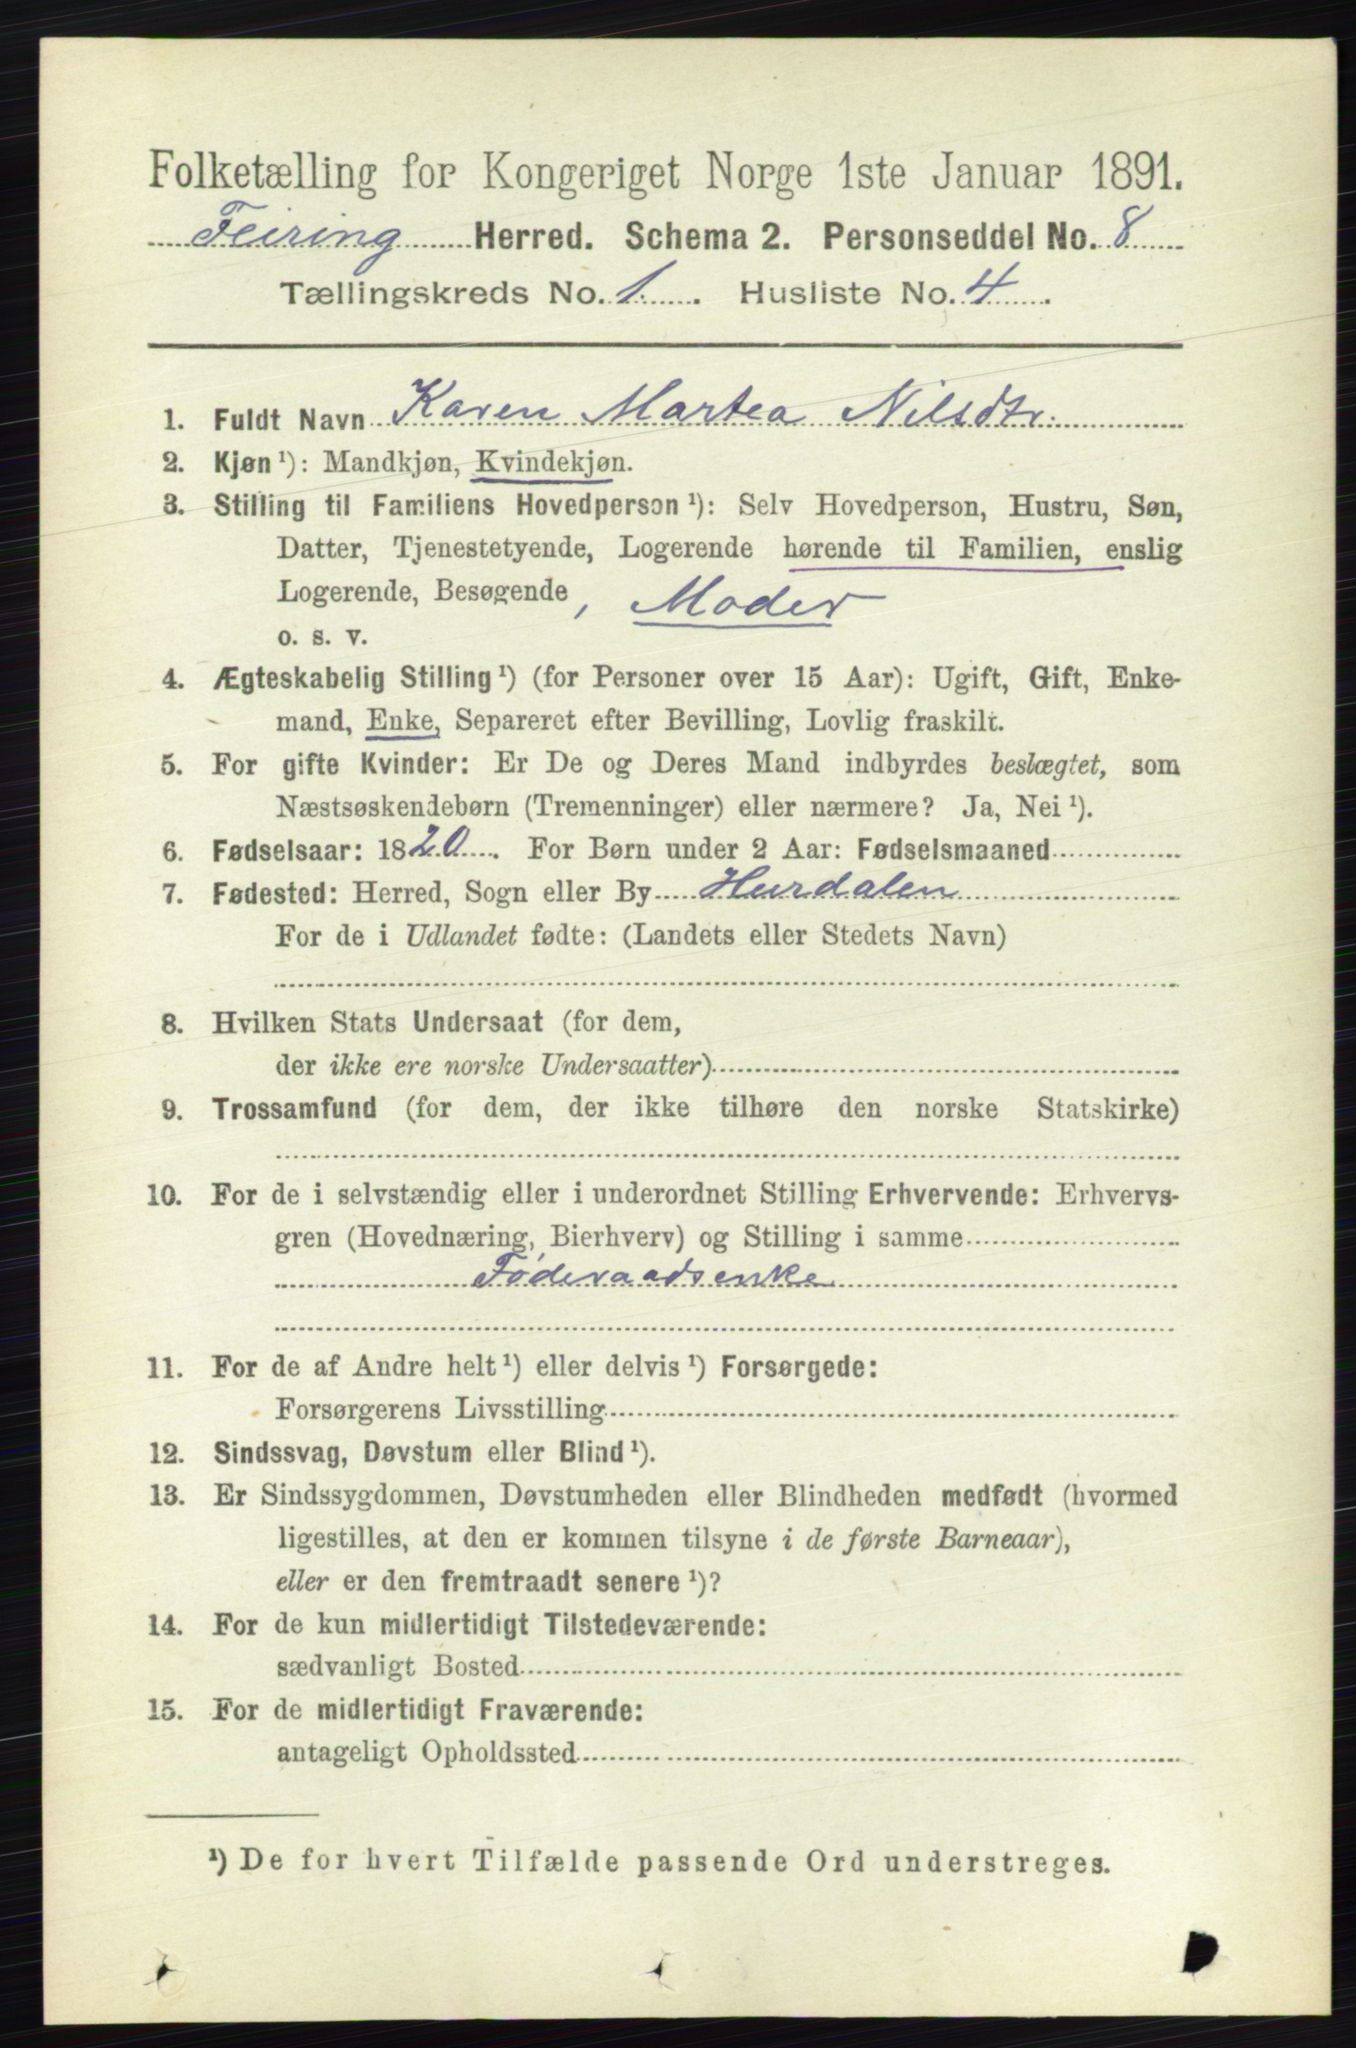 Folketælling for Kongeriget Norge 1ste Januar 1891.
Feiring Herred. Schema 2. Personseddel No. 8
Tællingskreds No. 1. Husliste No. 4.
1. Fuldt Navn Karen Martea Nilsdtr.
2. Kjøn ¹): Mandkjøn, Kvindekjøn.
3. Stilling til Familiens Hovedperson ¹): Selv Hovedperson, Hustru, Søn,
Datter, Tjenestetyende, Logerende hørende til Familien, enslig
Logerende, Besøgende, Moder
o. s. v.
4. Ægteskabelig Stilling ¹) (for Personer over 15 Aar): Ugift, Gift, Enke-
mand, Enke, Separeret efter Bevilling, Lovlig fraskilt.
5. For gifte Kvinder: Er De og Deres Mand indbyrdes beslægtet, som
Næstsøskendebørn (Tremenninger) eller nærmere? Ja, Nei ¹).
6. Fødselsaar: 1820. For Børn under 2 Aar: Fødselsmaaned
7. Fødested: Herred, Sogn eller By Hurdalen
For de i Udlandet fødte: (Landets eller Stedets Navn)
8. Hvilken Stats Undersaat (for dem,
der ikke ere norske Undersaatter)
9. Trossamfund (for dem, der ikke tilhøre den norske Statskirke)
10. For de i selvstændig eller i underordnet Stilling Erhvervende: Erhvervs-
gren (Hovednæring, Bierhverv) og Stilling i samme
Føderaadsenke
11. For de af Andre helt ¹) eller delvis ¹) Forsørgede:
Forsørgerens Livsstilling
12. Sindssvag, Døvstum eller Blind ¹).
13. Er Sindssygdommen, Døvstumheden eller Blindheden medfødt (hvormed
ligestilles, at den er kommen tilsyne i de første Barneaar),
eller er den fremtraadt senere ¹)?
14. For de kun midlertidigt Tilstedeværende:
sædvanligt Bosted
15. For de midlertidigt Fraværende:
antageligt Opholdssted
¹) De for hvert Tilfælde passende Ord understreges.